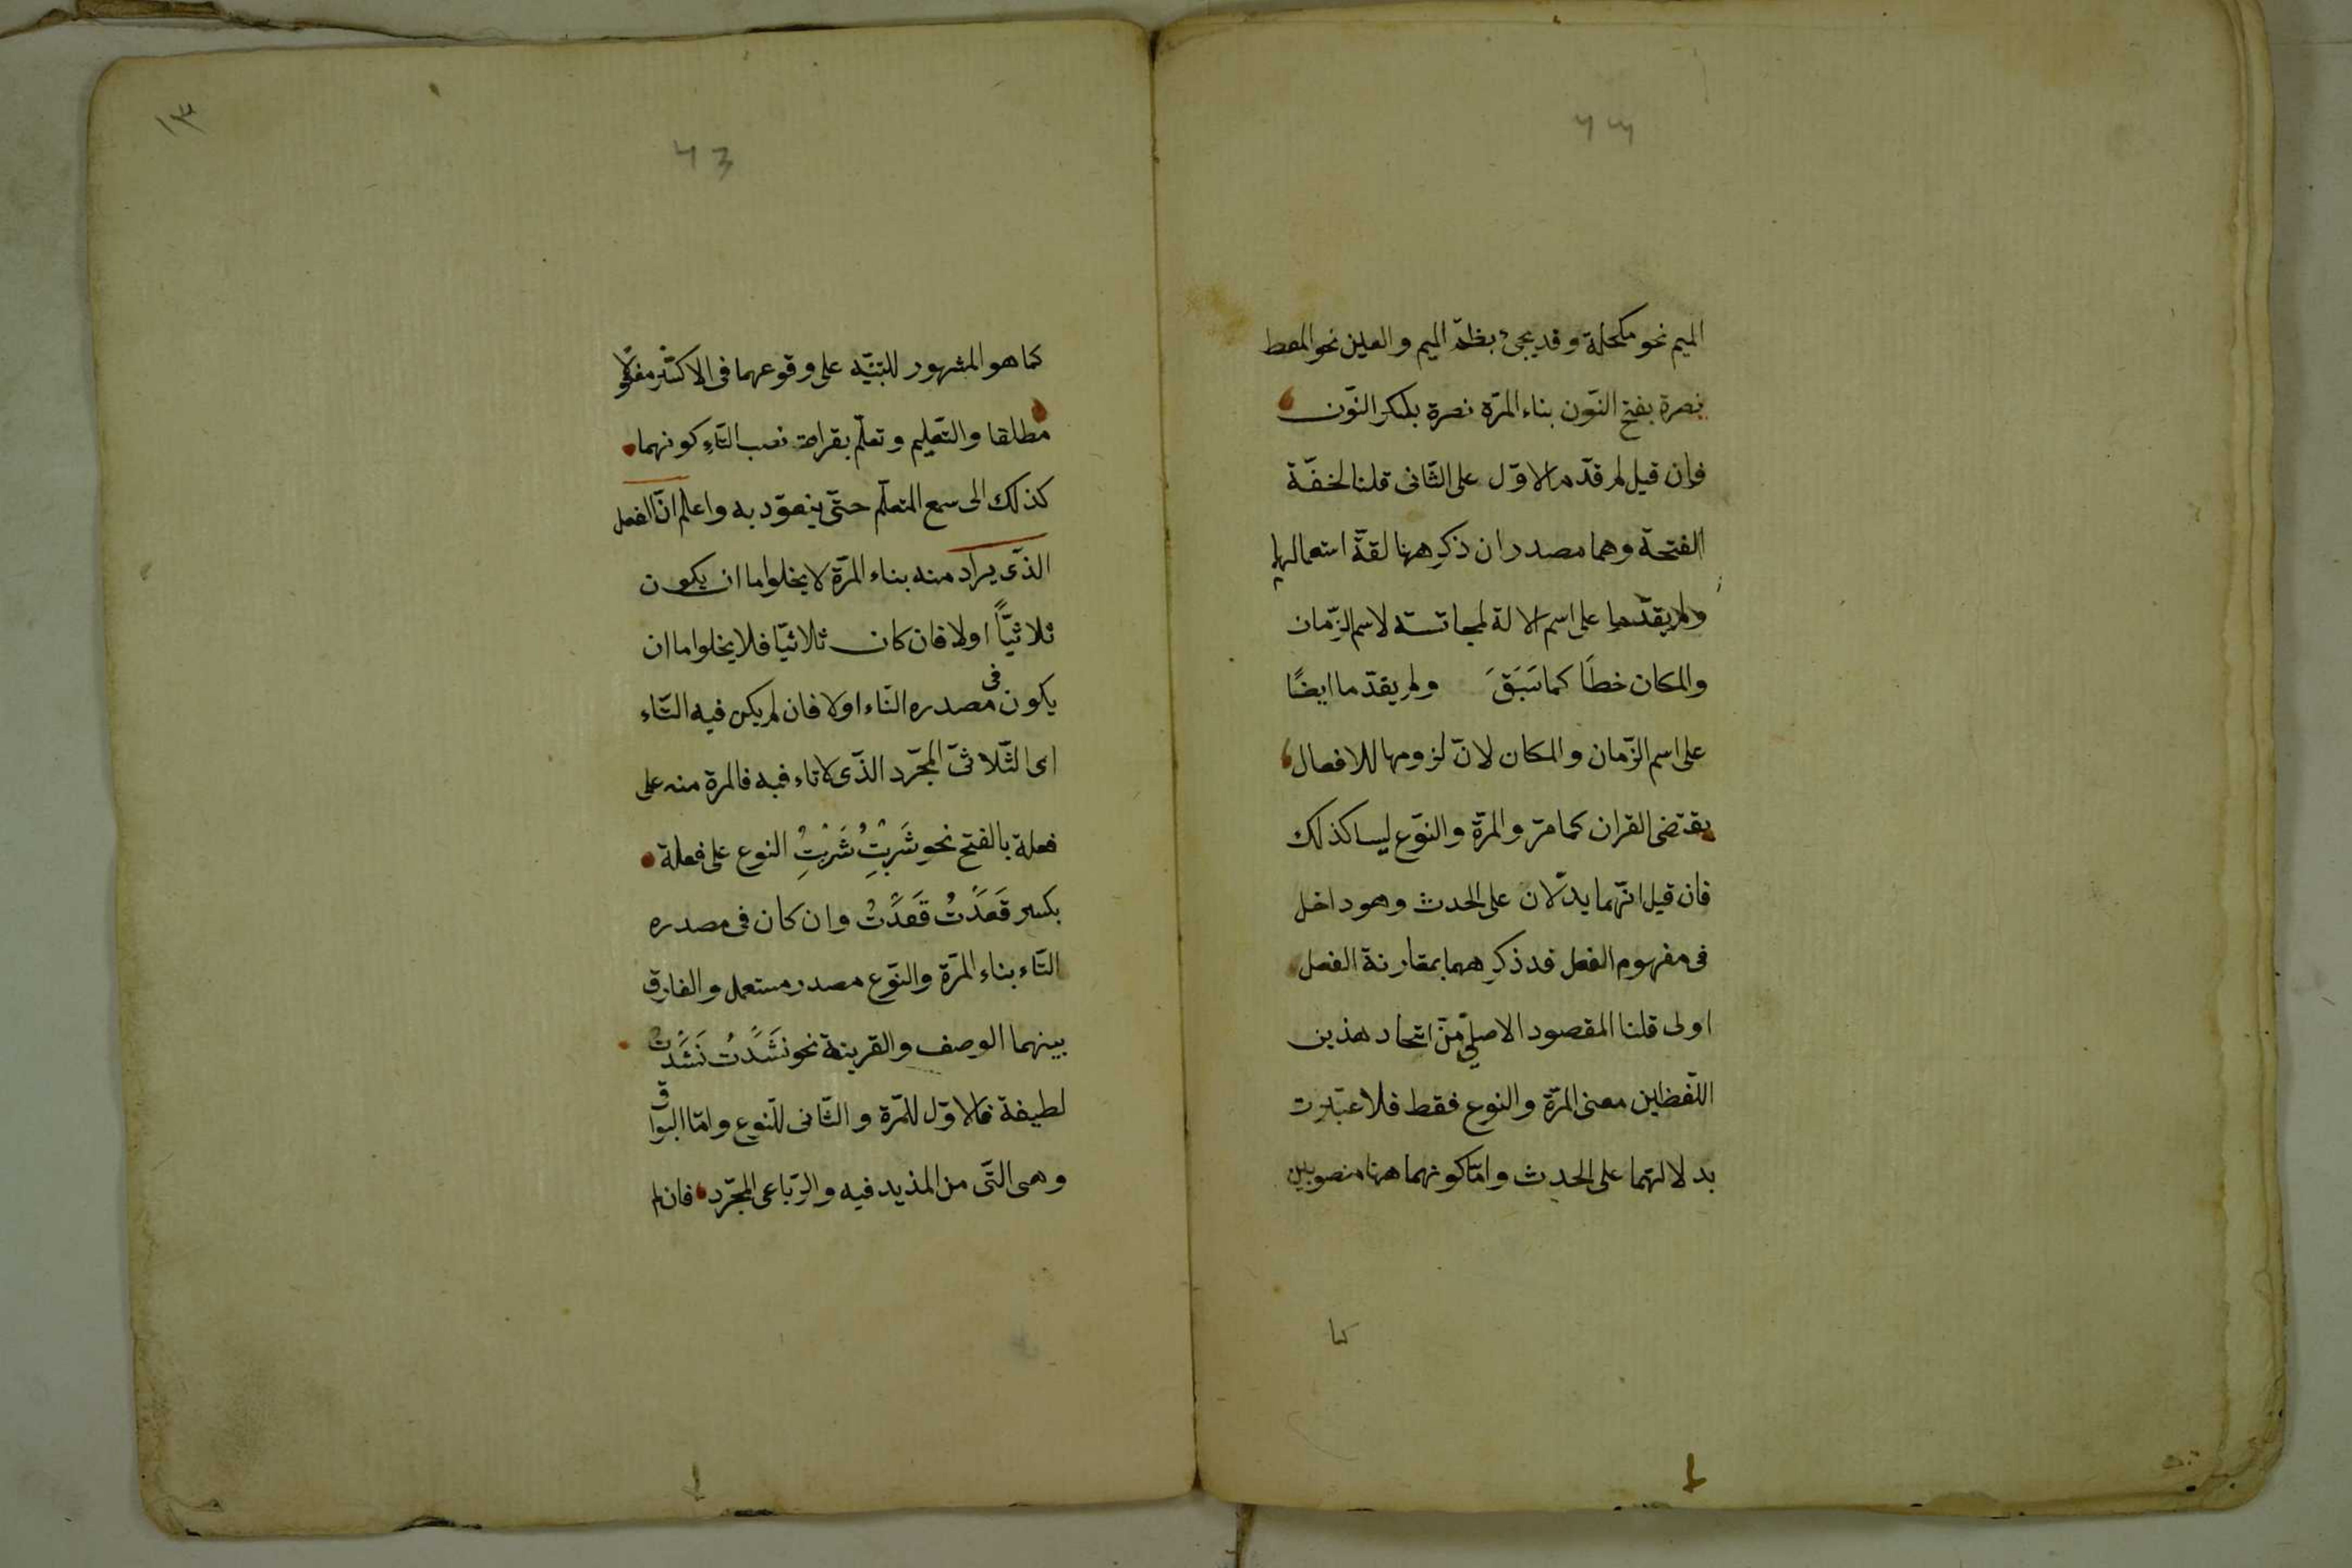 الميم نحو مكحلة وقد يجئ بظم الميم والعين نحو المعط
نصرة بفتح النّون بناء المرّة نصرة بكسر النّون
فإن قيل لم قدّم الاوّل على الثّانى قلنا لخفّة
الفتحة وهما مصدران ذكر ههنا لقلّة استعمالهما
ولم يقدّما على اسم الالة لمجانسته لاسم الزّمان
والمكان خطّا كما سَبَقَ ولم يقدّما ايضًا
على اسم الزّمان والمكان لانّ لزومها للافعال
يقتضى القران كما مرّ والمرّة والنّوع ليسا كذلك
فان قيل انّهما يدلّان على الحدث وهو داخل
فى مفهوم الفعل فذكرهما بمقارنة الفعل
اولى قلنا المقصود الاصلىّ من اتحاد هذين
اللّفظين معنى المرّة والنوع فقط فلا عبرت
بدلالتهما على الحدث وامّا كونهما ههنا منصوبين
كما
١٣
43
كما هو المشهور للتنبيه على وقوعهما فى الاكثر مفعولا
مطلقا والتّعليم وتعلّم بقراءة نصب التّاءِ كونهما
كذلك الى سمع المتعلّم حتّى يتعوّد به واعلم انّ الفعل
الذّى يراد منه بناء المرّة لا يخلوا ما ان يكون
ثلاثيًّا اولا فان كان ثلاثيّا فلا يخلوا ما ان
يكون فى مصدره التّاء اولا فان لم يكن فيه التّاء
اى الثّلاثىّ المجّرد الذّى لا تاء فيه فالمرة منه على
فعلة بالفتح نحو شَرِبْتُ شَرْبَتِ النوع على فعلة
بكسر قَعَدْتُ قَعْدَتُ وان كان فى مصدره
التّاء بناء المرّة والنّوع مصدر مستعمل والفارق
بينهما الوصف والقرينة نحو نَشَدْتُ نَشْدَتُ
لطيفة فالاوّل للمّرة والثّانى للنّوع وامّا البواقى
وهى التّى من المذيد فيه والرّباعى المجّرد فان لم